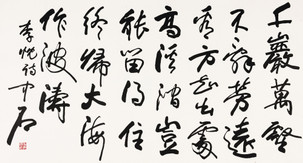 千巖萬壑
不辭勞遠
看方知出處
高溪澗豈
能留得住
終歸大海
作波濤
李忱詩 中石